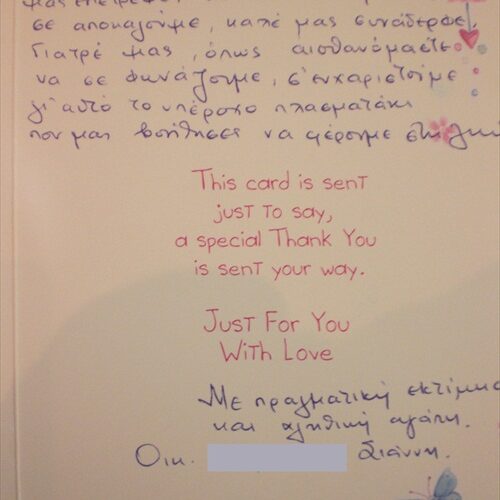 σε αποκαλούμε, καλέ μας συνάδερφε.
Γιατρέ μας, όπως αισθανόμαστε
να σε φωνάζουμε, σ'ευχαριστούμε
γι'αυτό το υπέροχο πλασματάκι
που μας βοήθησες να φέρουμε στη
This card is sent
just to say,
a special Thank You
is sent your way.
Just For You
With Love
Με πραγματική εκτίμηση
και αληθινή αγάπη.
Οικ.
Γιάννη.